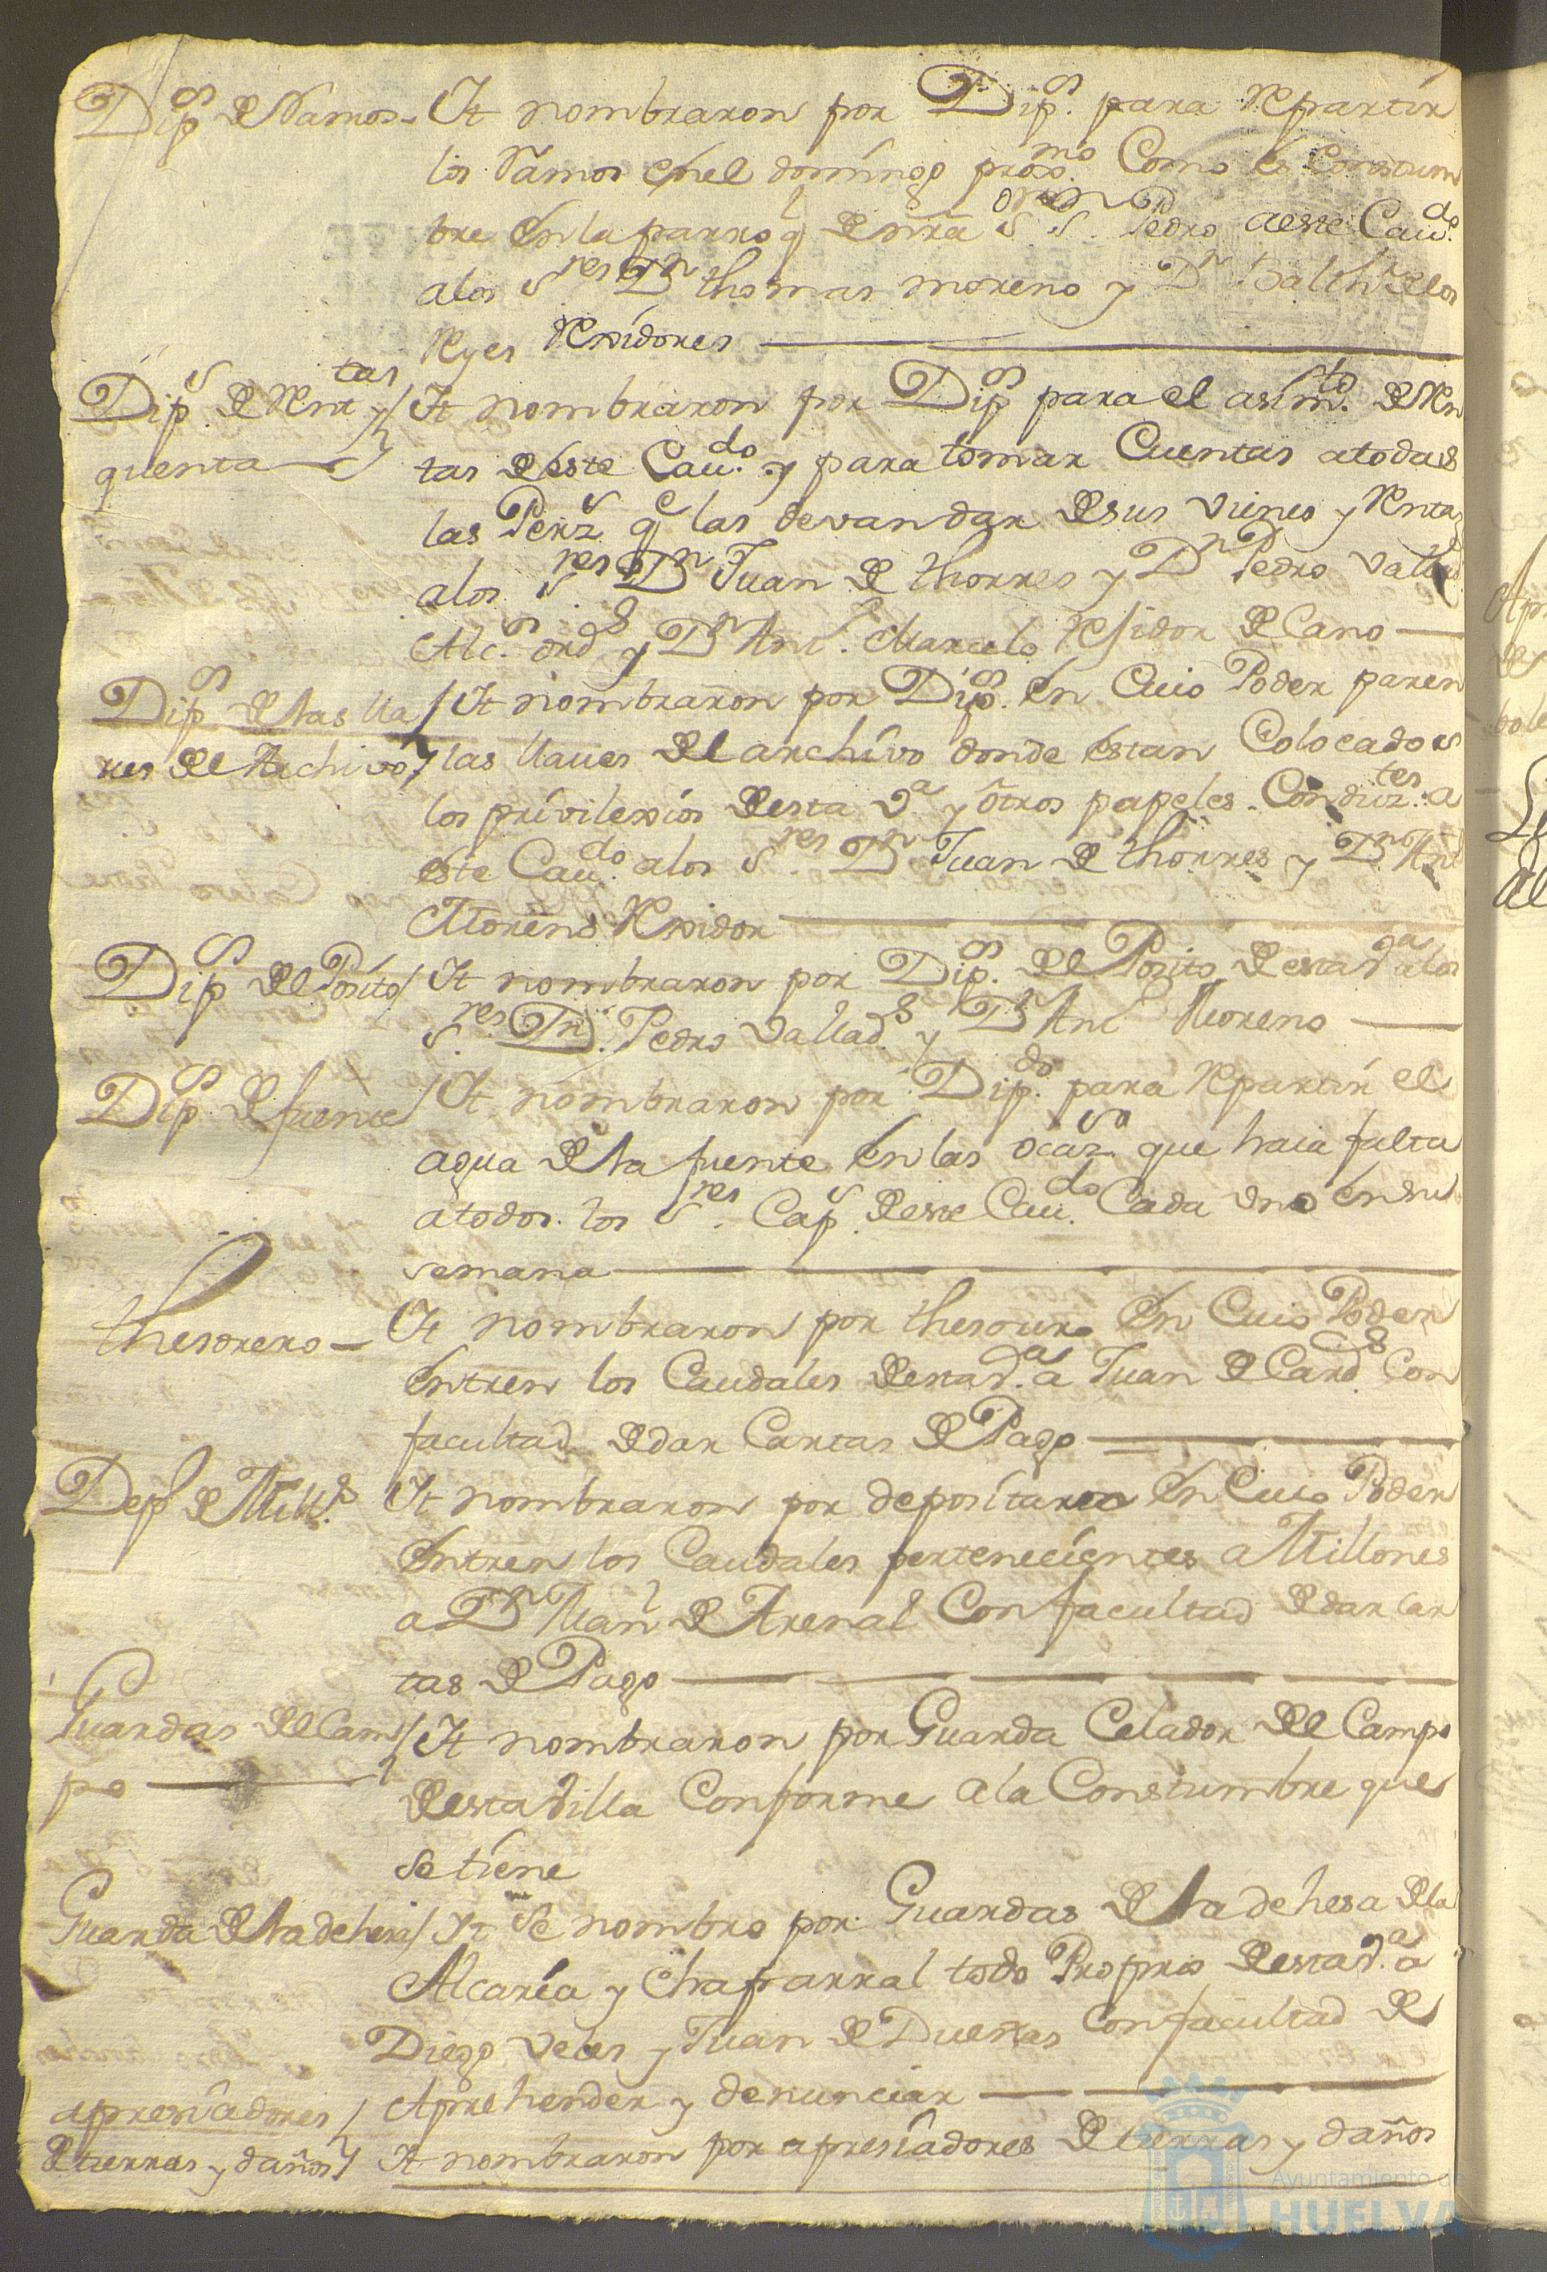 Dip.s de Ramos - It nombraron por Dip.s para Repartir
los Ramos en el domingo prox.mo Como es Constum
bre en la parroq.l de nra S.S. Pedro a este Cau.do
a los S.res Dn thomas moreno y Dn Balthr. de los
Reyes Rexidores
Dip.s de Rentas y / It nombraron por Dip.s para el asim.to de Ren
quenta tas de este Cau.do y para tomar Cuentas a todas
las Perz.s q.e las devan dar de sus vienes y Rentas
a los S.res Dn Juan de thorres y Dn Pedro Vallad
Alc.s ord.s y Dn Ant.o Marcelo Rejidor de Cano
Dip.s de las lla / It nombraron por Dip.s en Cuio Poder paren
ues del Archivo las llaues del archivo donde estan Colocados
los privilexios de esta V.a y otros papeles Conduz.tes a
este Cau.do a los S.res Dn Juan de thorres y Dn Ant
Moreno Rexidor
Dip.s del Posito / It nombraron por Dip.s del Posito de esta V.a a los
S.res Dn. Pedro Vallad.s y Dn Ant Moreno
Dip.s de fuente / It nombraron por Dip.do para Repartir el
agua de la fuente en las ocaz.s que haia falta
a todos los S.res Cap.s de este Cau.do Cada uno en su
semana
thesorero - It nombraron por thesourero en Cuio Poder
entren los Caudales de esta V.a a Juan de Card.s Con
facultad de dar Cartas de Pago
Dep.o de Mill.s It nombraron por depositario en Cuio Poder
entren los Caudales pertenecientes a Millones
a Dn Man.l de Arenal Con facultad de dar Car
tas de Pago
Guardas del Cam / It nombraron por Guarda Celador del Campo
po de esta Villa Conforme a la Constumbre que
se tiene
Guarda de la dehesa / It Se nombro por Guardas de la dehesa de la
Alcaria y Chaparral todo Proprio de esta V.a a
Diego Veles y Juan de Dueñas Con facultad de
Aprehender y denunciar
apresiadores / It nombraron por apresiadores de tierras y daños
de tierras y daños
Ayuntamiento de
HUELVA